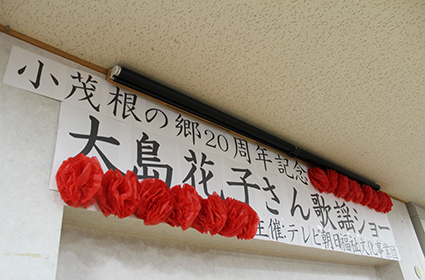 小茂根の郷20周年記念
大島花子さん歌謡ショー
主催:テレビ朝日福祉文化事業団